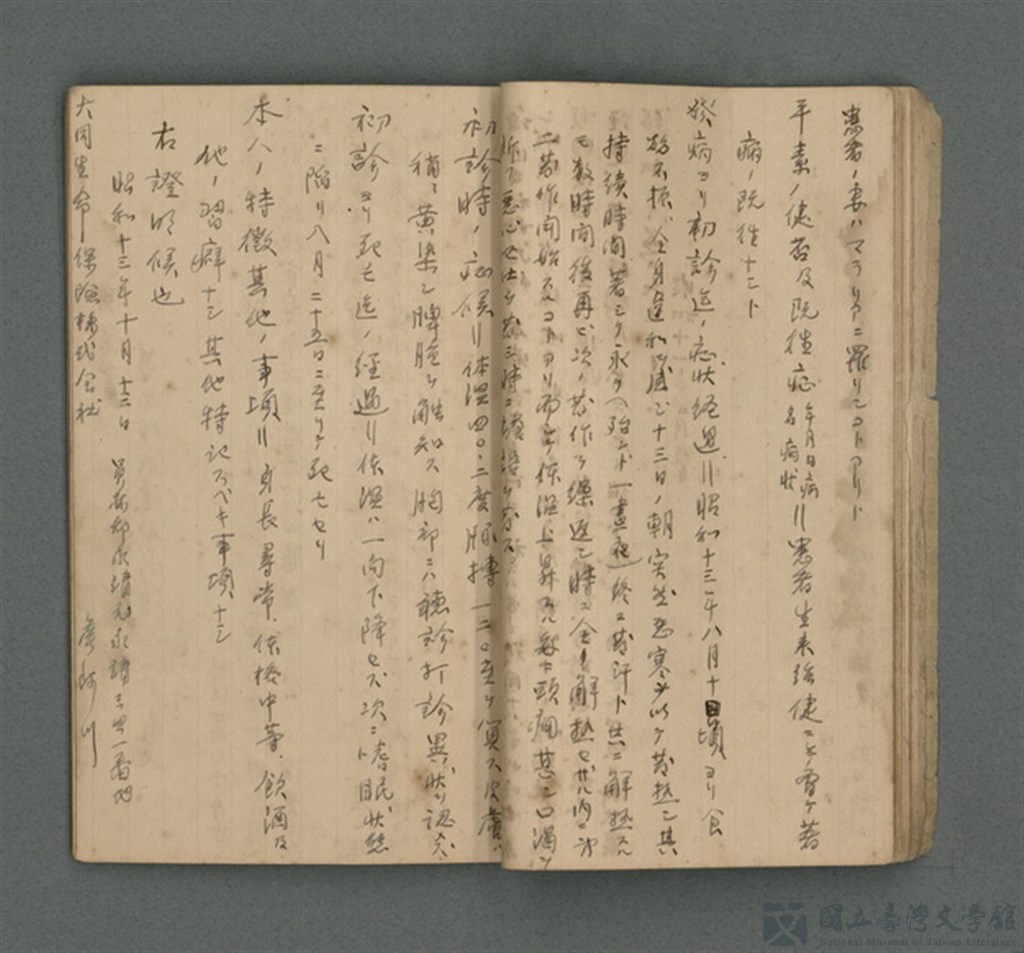 患者ノ妻ハマラリアニ罹リシコトアリト
平素ノ健否及既往症年月日病名病状ハ患者生来強健ニシテ著
病ノ既往ナシト
発病ヨリ初診迄ノ症状経過ハ昭和十三年八月十日頃ヨリ食
慾不振、全身違和ヲ感ジ十三日ノ朝突然悪寒ヲ以テ発熱シ其
持続時間著シク永ク殆ンド一晝夜終ニ発汗ト共ニ解熱スル
モ数時間後再ビ次ノ発作ヲ繰返シ時ニ全ク解熱セザル内ニ次
ニ発作開始スルコトアリ而シテ体温上昇スル毎ニ頭痛甚シ口渇ヲ
訴ヘ悪心
初診時ノ症候ハ体温四〇.二度脉搏一二〇至ヲ算ス皮膚ハ
稍々黄染シ脾腫ヲ触知ス胸部ニハ聴診打診異状ヲ認メズ
初診ヨリ死亡迄ノ経過ハ体温ハ一向下降セズ次ニ嗜眠状態
ニ陥リ八月二十五日ニ至リテ死亡セリ
本人ノ特徴其他ノ事項ハ身長尋常、体格中等、飲酒及
他ノ習癖ナシ其他特記スベキ事項ナシ
右證明候也
昭和十三年十月十二日 員林郡永靖庄永靖三四一番地
詹阿川
大同生命保険株式会社
國立臺灣文學館
National Museum of Taiwan Literature